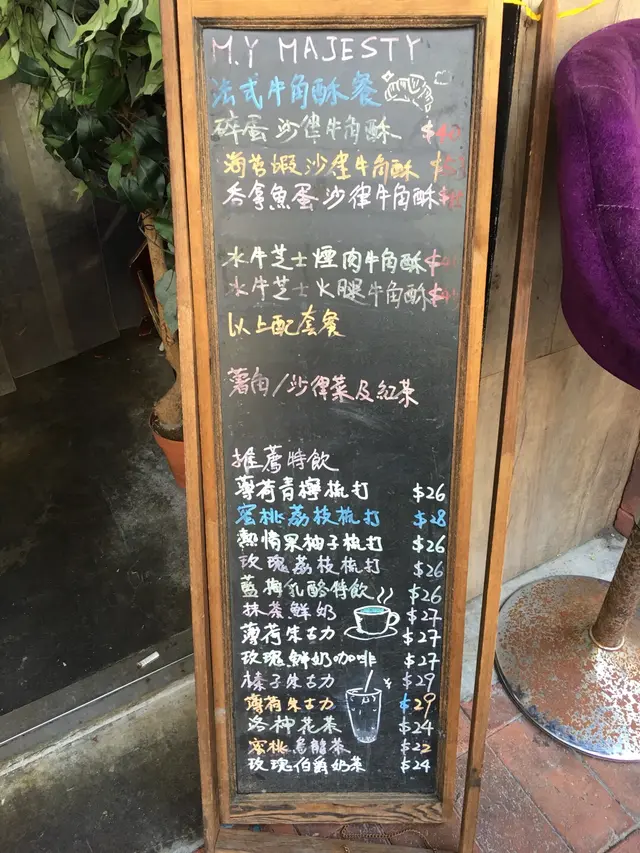 M.Y MAJESTY
法式牛角酥餐
碎蛋沙律牛角酥
海苔蝦沙律牛角酥
吞拿魚蛋沙律牛角酥
水牛芝士煙肉牛角酥
水牛芝士火腿牛角酥
以上配套餐
薯角/沙律菜及紅茶
推薦特飲
薄荷青檸梳打 $26
蜜桃荔枝梳打 $28
熱情果柚子梳打 $26
玫瑰荔枝梳打 $26
藍梅乳酪特飲 $26
抹茶鮮奶 $27
薄荷朱古力 $27
玫瑰鮮奶咖啡 $27
榛子朱古力 $29
薄荷朱古力 $29
洛神花茶 $24
蜜桃烏龍茶 $22
玫瑰伯爵奶茶 $24